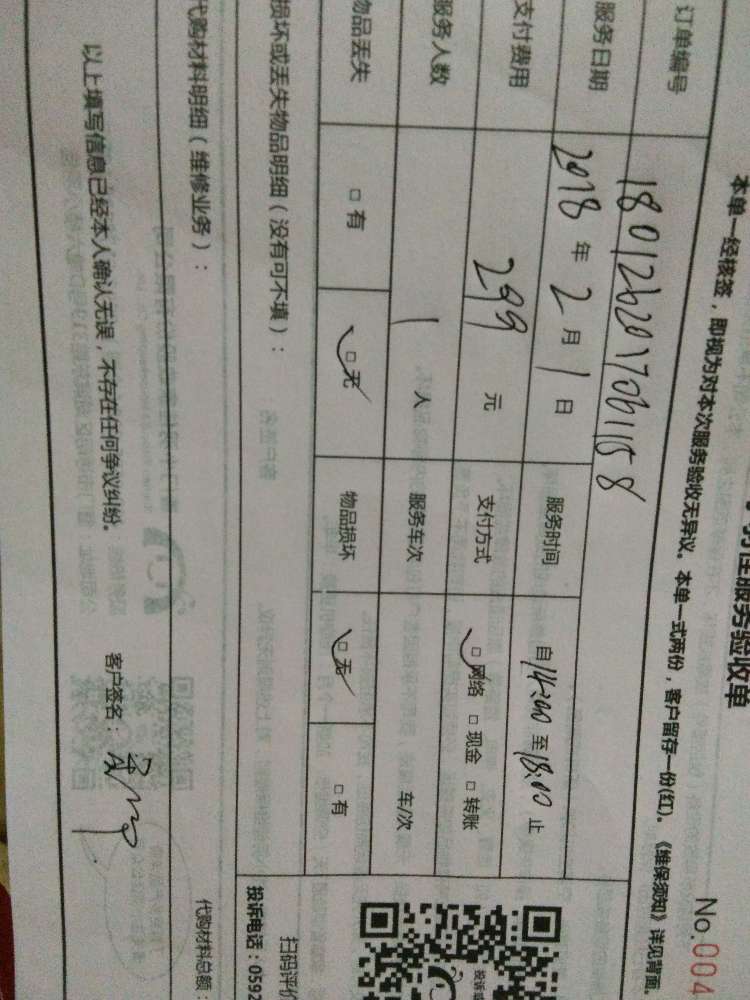 性服务验收单
No.004
本单一经核签，即视为对本次服务验收无异议。本单一式两份，客户留存一份(红)。《维保须知》详见背面。
订单编号 1801262017061158
服务日期 2018 年 2 月 1 日 服务时间 自 14:00 至 18:00 止
支付费用 299 元 支付方式 □ 网络 □ 现金 □ 转账
服务人数 1 人 服务车次 车/次
物品丢失 □ 有 □ 无 物品损坏 □ 无 □ 有
损坏或丢失物品明细（没有可不填）：
扫码评价
投诉电话：0592
代购材料明细（维修业务）：
代购材料总额：
以上填写信息已经本人确认无误，不存在任何争议纠纷。
客户签名：